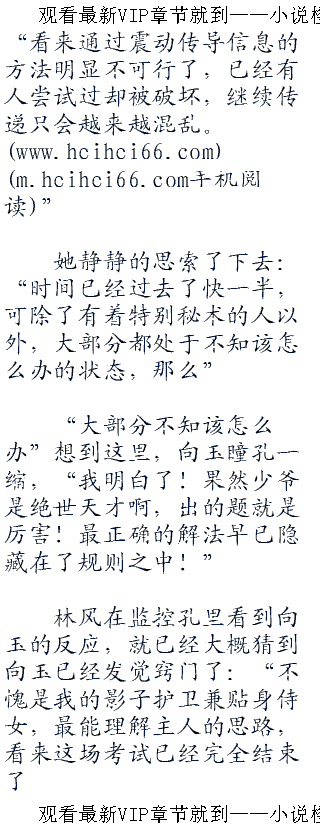 观看最新VIP章节就到——小说检
“看来通过震动传导信息的
方法明显不可行了，已经有
人尝试过却被破坏，继续传
递只会越来越混乱。
(www.hcihci66.com)
(m.hcihci66.com手机阅
读)”
她静静的思索了下去：
“时间已经过去了快一半，
可除了有着特别秘术的人以
外，大部分都处于不知该怎
么办的状态，那么”
“大部分不知该怎么
办”想到这里，向玉瞳孔一
缩，“我明白了！果然少爷
是绝世天才啊，出的题就是
厉害！最正确的解法早已隐
藏在了规则之中！”
林风在监控孔里看到向
玉的反应，就已经大概猜到
向玉已经发觉窍门了：“不
愧是我的影子护卫兼贴身侍
女，最能理解主人的思路，
看来这场考试已经完全结束
了
观看最新VIP章节就到——小说检